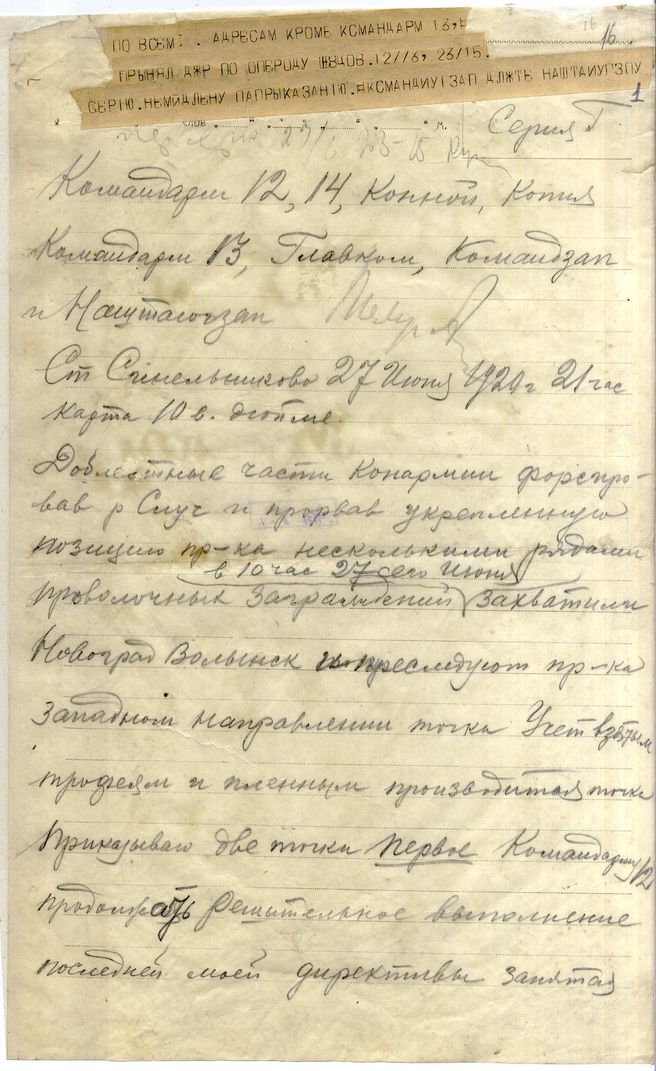 16
16
ПО ВСЕМ: . АДРЕСАМ КРОМЕ КСМАНДАРМ 13,
ПРИНЯЛ ДЖР ПО ОПЕРОДУ ШВДОВ.12//6, 23/15.
СЕРІЮ.НЕМЙДЛЕНУ ПАПРЫКАЗАНІЮ. ДЛЖТЬ НАШТАИУГЗПУ
1
слов м.
27/6 23-15
Серия Г
Командарм 12, 14, Конной, Копия
Командарм 13, Главком, Командзап
и Наштаюгзап
Ст Синельниково 27 Июня 1920 г 21 час
карта 10 в. дюйме.
Доблестные части Конармии форсиро-
вав р Случ и прорвав укрепленную
позицию пр-ка несколькими рядами
в 10 час 27 сего Июня
проволочных заграждений захватили
Новоград Волынск и преследуют пр-ка
западном направлении точка Учет взятым
трофеям и пленным производится точка
Приказываю две точки первое Командарму 12
продолжать решительное выполнение
последней моей директивы запятая